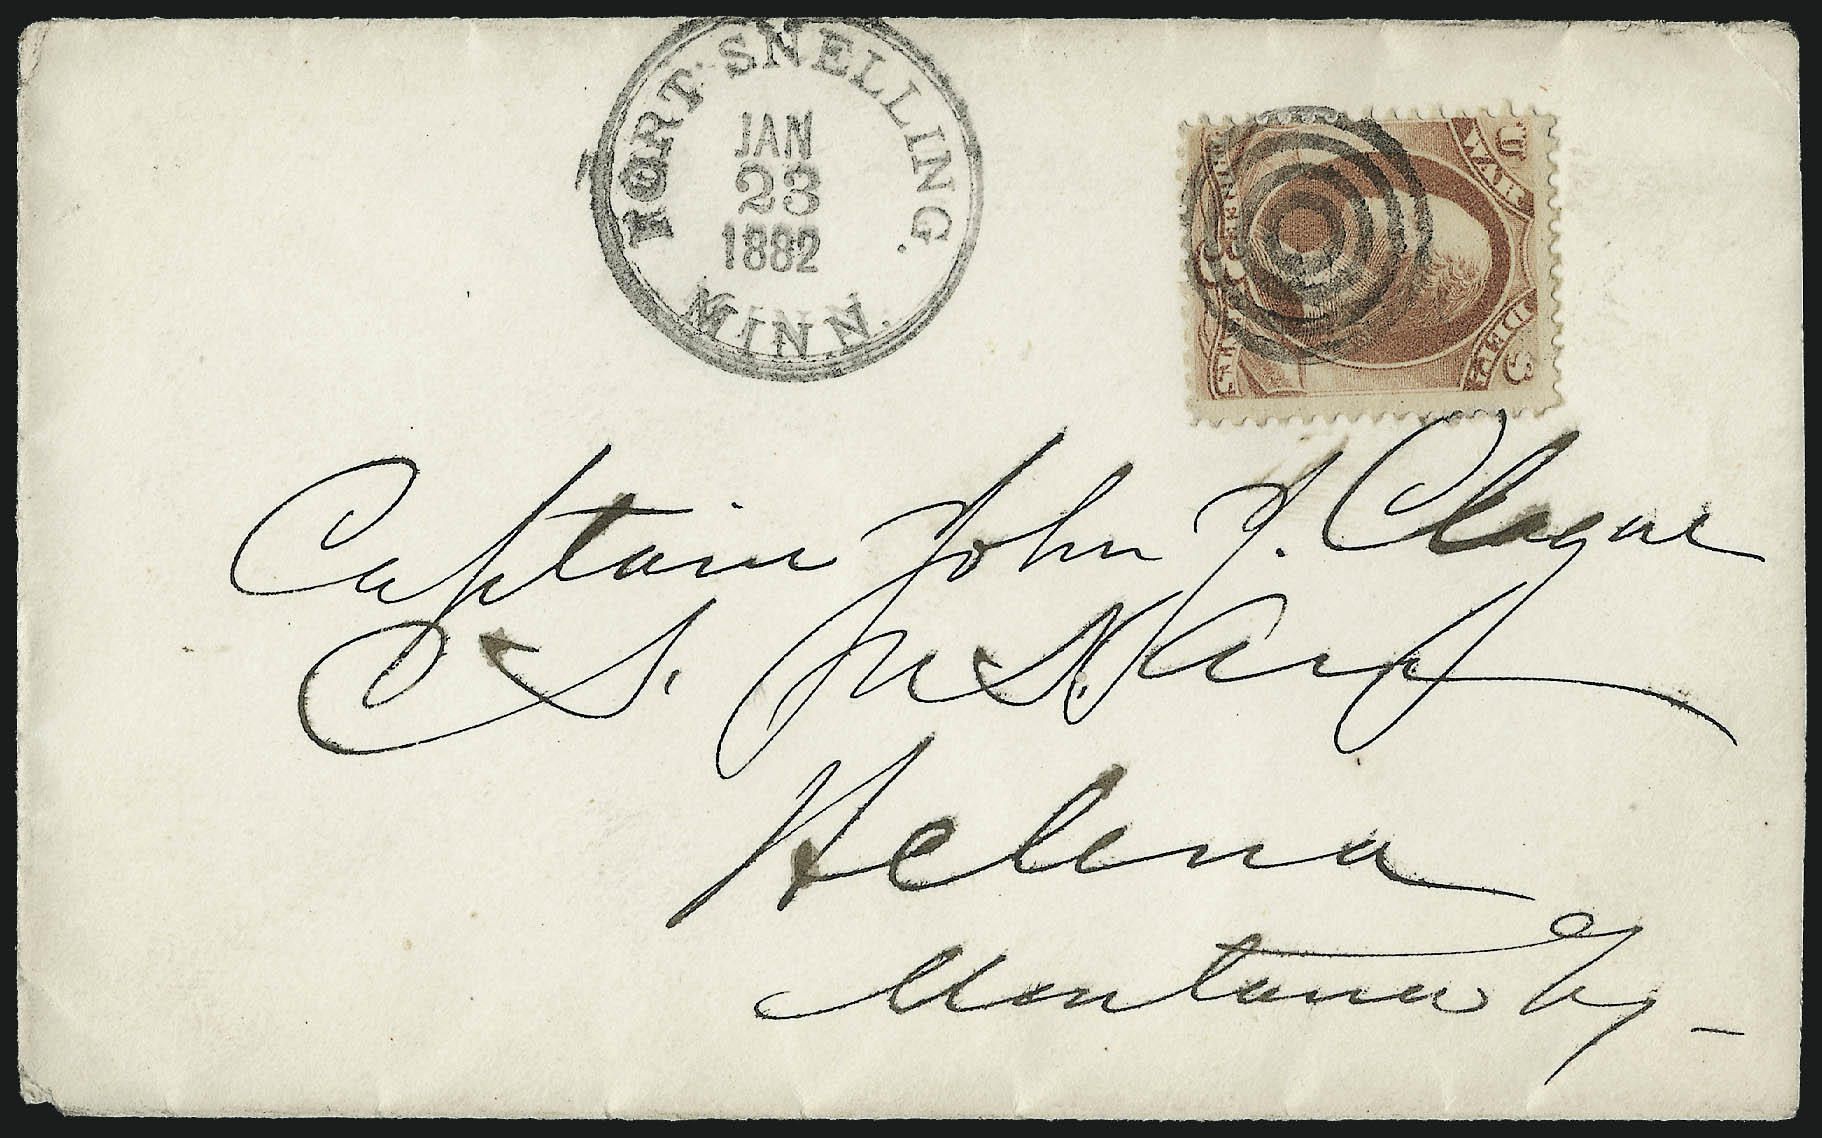 FORT SNELLING.
JAN
23
1882
MINN.
U.S.
WAR
DEPT.
Captain John J. Clague
C. S. U.S. Army
Helena
Montana Ty-